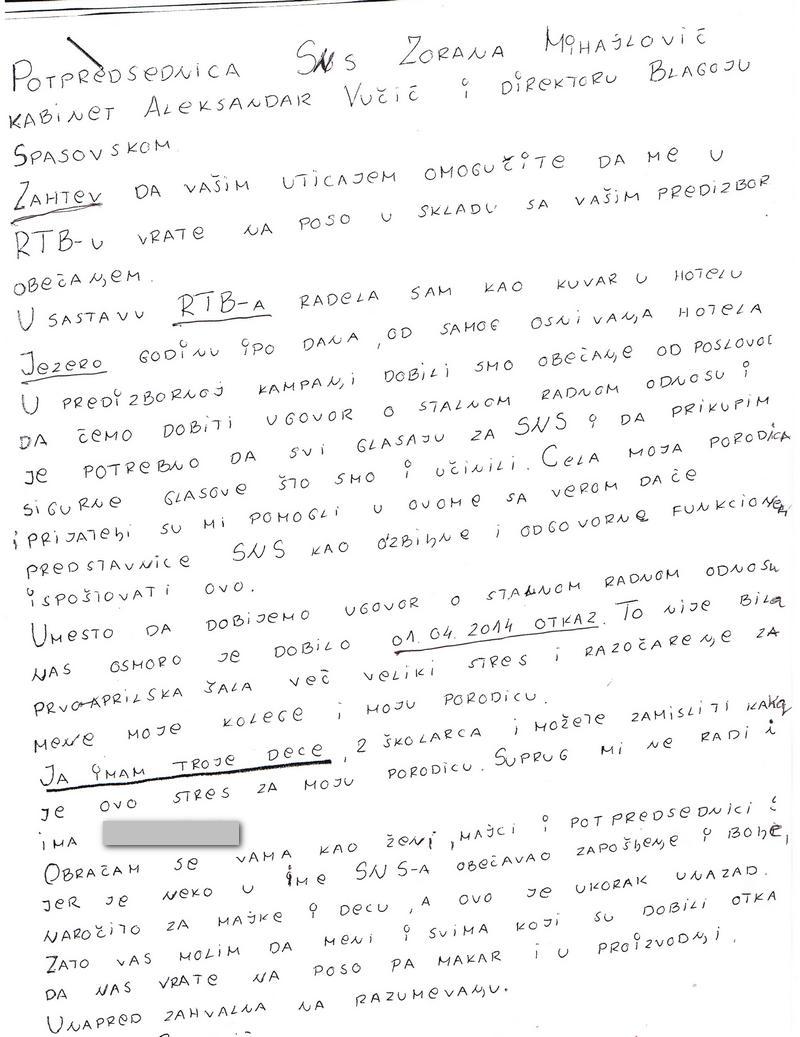 POTPREDSEDNICA SNS ZORANA MIHAJLOVIČ
KABINET ALEKSANDAR VUČIČ I DIREKTORU BLAGOJU
SPASOVSKOM
ZAHTEV DA VAŠIM UTICAJEM OMOGUČITE DA ME U
RTB-U VRATE NA POSO U SKLADU SA VAŠIM PREDIZBOR
OBEČANJEM.
U SASTAVU RTB-A RADELA SAM KAO KUVAR U HOTELU
JEZERO GODINU IPO DANA, OD SAMOG OSNIVANJA HOTELA
U PREDIZBORNOJ KAMPANJI DOBILI SMO OBEČANJE OD POSLOVOĐ
DA ČEMO DOBITI UGOVOR O STALNOM RADNOM ODNOSU I
JE POTREBNO DA SVI GLASAJU ZA SNS I DA PRIKUPIM
SIGURNE GLASOVE ŠTO SMO I UČINILI. CELA MOJA PORODICA
I PRIJATELJI SU MI POMOGLI U OVOME SA VEROM DA ČE
PREDSTAVNICE SNS KAO OZBILJNE I ODGOVORNE FUNKCIONER
ISPOŠTOVATI OVO.
UMESTO DA DOBIJEMO UGOVOR O STALNOM RADNOM ODNOSU
NAS OSMORO JE DOBILO 01.04.2014 OTKAZ. TO NIJE BILA
PRVOAPRILSKA ŠALA VEČ VELIKI STRES I RAZOČARENJE ZA
MENE MOJE KOLEGE I MOJU PORODICU.
JA IMAM TROJE DECE, 2 ŠKOLARCA I MOŽETE ZAMISLITI KAKO
JE OVO STRES ZA MOJU PORODICU. SUPRUG MI NE RADI I
IMA
OBRAČAM SE VAMA KAO ŽENI, MAJCI I POTPREDSEDNICI
JER JE NEKO U IME SNS-A OBEČAVAO ZAPOŠLJENJE I BOLJE,
NAROČITO ZA MAJKE I DECU, A OVO JE UKORAK UNAZAD.
ZATO VAS MOLIM DA MENI I SVIMA KOJI SU DOBILI OTKA
DA NAS VRATE NA POSO PA MAKAR I U PROIZVODNJI.
UNAPRED ZAHVALNA NA RAZUMEVANJU.